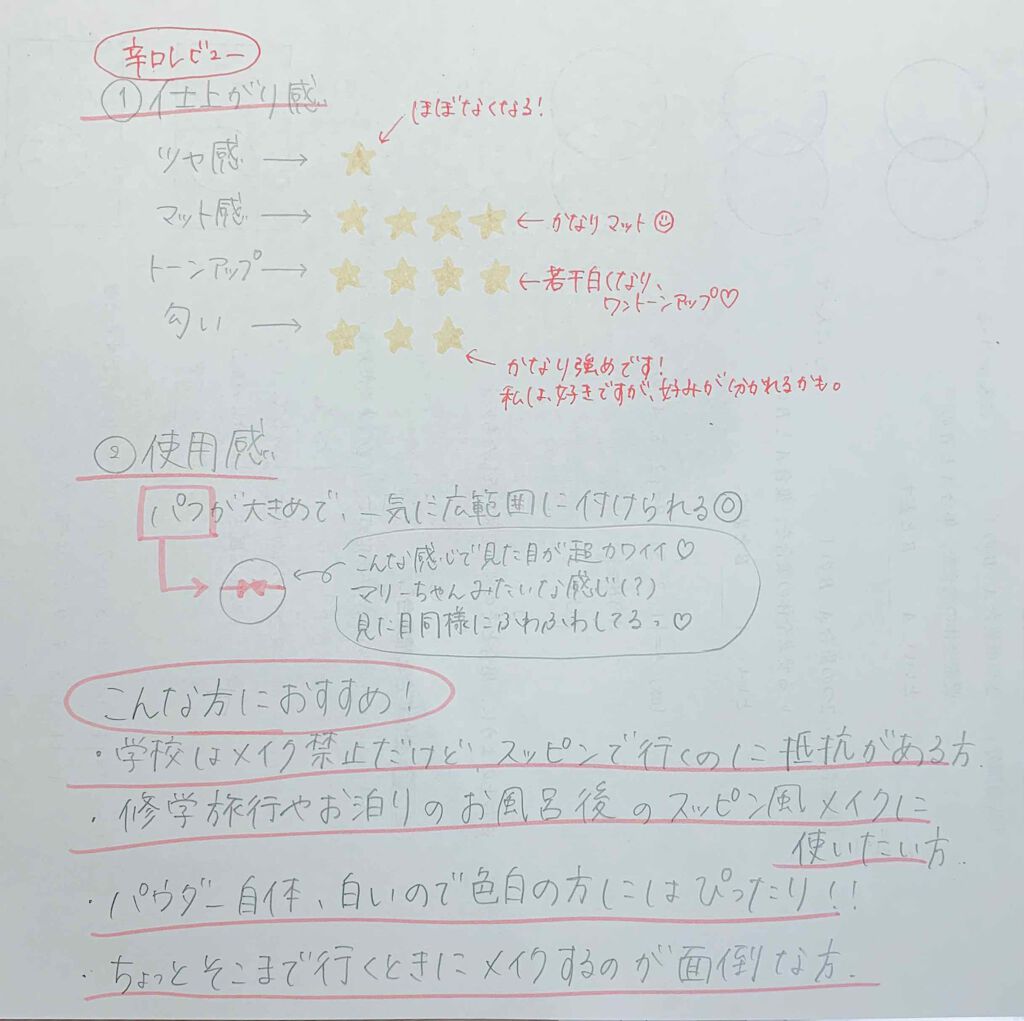 辛口レビュー
①仕上がり感
ほぼなくなる!
ツヤ感 → ★
マット感 → ★★★★ ← かなりマット☺
トーンアップ → ★★★★ ← 若干白くなり、
ワントーンアップ♡
匂い → ★★★
かなり強めです!
私は、好きですが、好みが分かれるかも。
②使用感
パフが大きめで、一気に広範囲に付けられる◎
こんな感じで見た目が超カワイイ♡
マリーちゃんみたいな感じ(?)
見た目同様にふわふわしてるっ♡
こんな方におすすめ!
・学校はメイク禁止だけど スッピンで行くのに抵抗がある方.
・修学旅行やお泊りのお風呂後のスッピン風メイクに
使いたい方.
・パウダー自体、白いので色白の方にはぴったり!!
・ちょっとそこまで行くときにメイクするのが面倒な方.